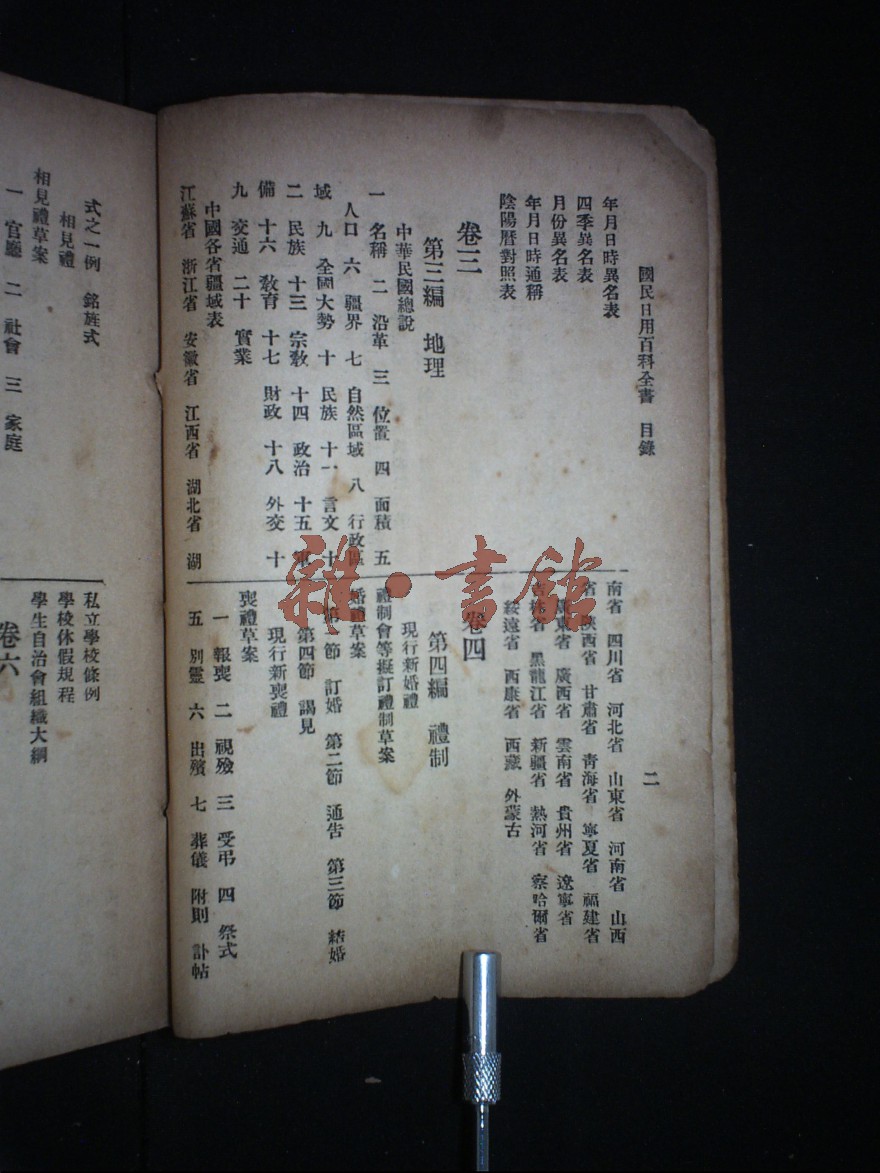 國民日用百科全書　目錄
二
年月日時異名表
四季異名表
月份異名表
年月日時通稱
陰陽曆對照表
卷三
第三編　地理
中華民國總說
一　名稱　二　沿革　三　位置　四　面積　五
人口　六　疆界　七　自然區域　八　行政區
域　九　全國大勢　十　民族　十一　言文　十
二　民族　十三　宗教　十四　政治　十五
備　十六　教育　十七　財政　十八　外交　十
九　交通　二十　實業
中國各省疆域表
江蘇省　浙江省　安徽省　江西省　湖北省　湖
南省　四川省　河北省　山東省　河南省　山西
省　陝西省　甘肅省　青海省　寧夏省　福建省
廣東省　廣西省　雲南省　貴州省　遼寧省
吉林省　黑龍江省　新疆省　熱河省　察哈爾省
綏遠省　西康省　西藏　外蒙古
卷四
第四編　禮制
現行新婚禮
禮制會等擬訂禮制草案
婚禮草案
第一節　訂婚　第二節　通告　第三節　結婚
第四節　謁見
現行新喪禮
喪禮草案
一　報喪　二　視殮　三　受弔　四　祭式
五　別靈　六　出殯　七　葬儀　附則　訃帖
式之一例　銘旌式
相見禮
相見禮草案
一　官廳　二　社會　三　家庭
私立學校條例
學校休假規程
學生自治會組織大綱
卷六
雜·書館